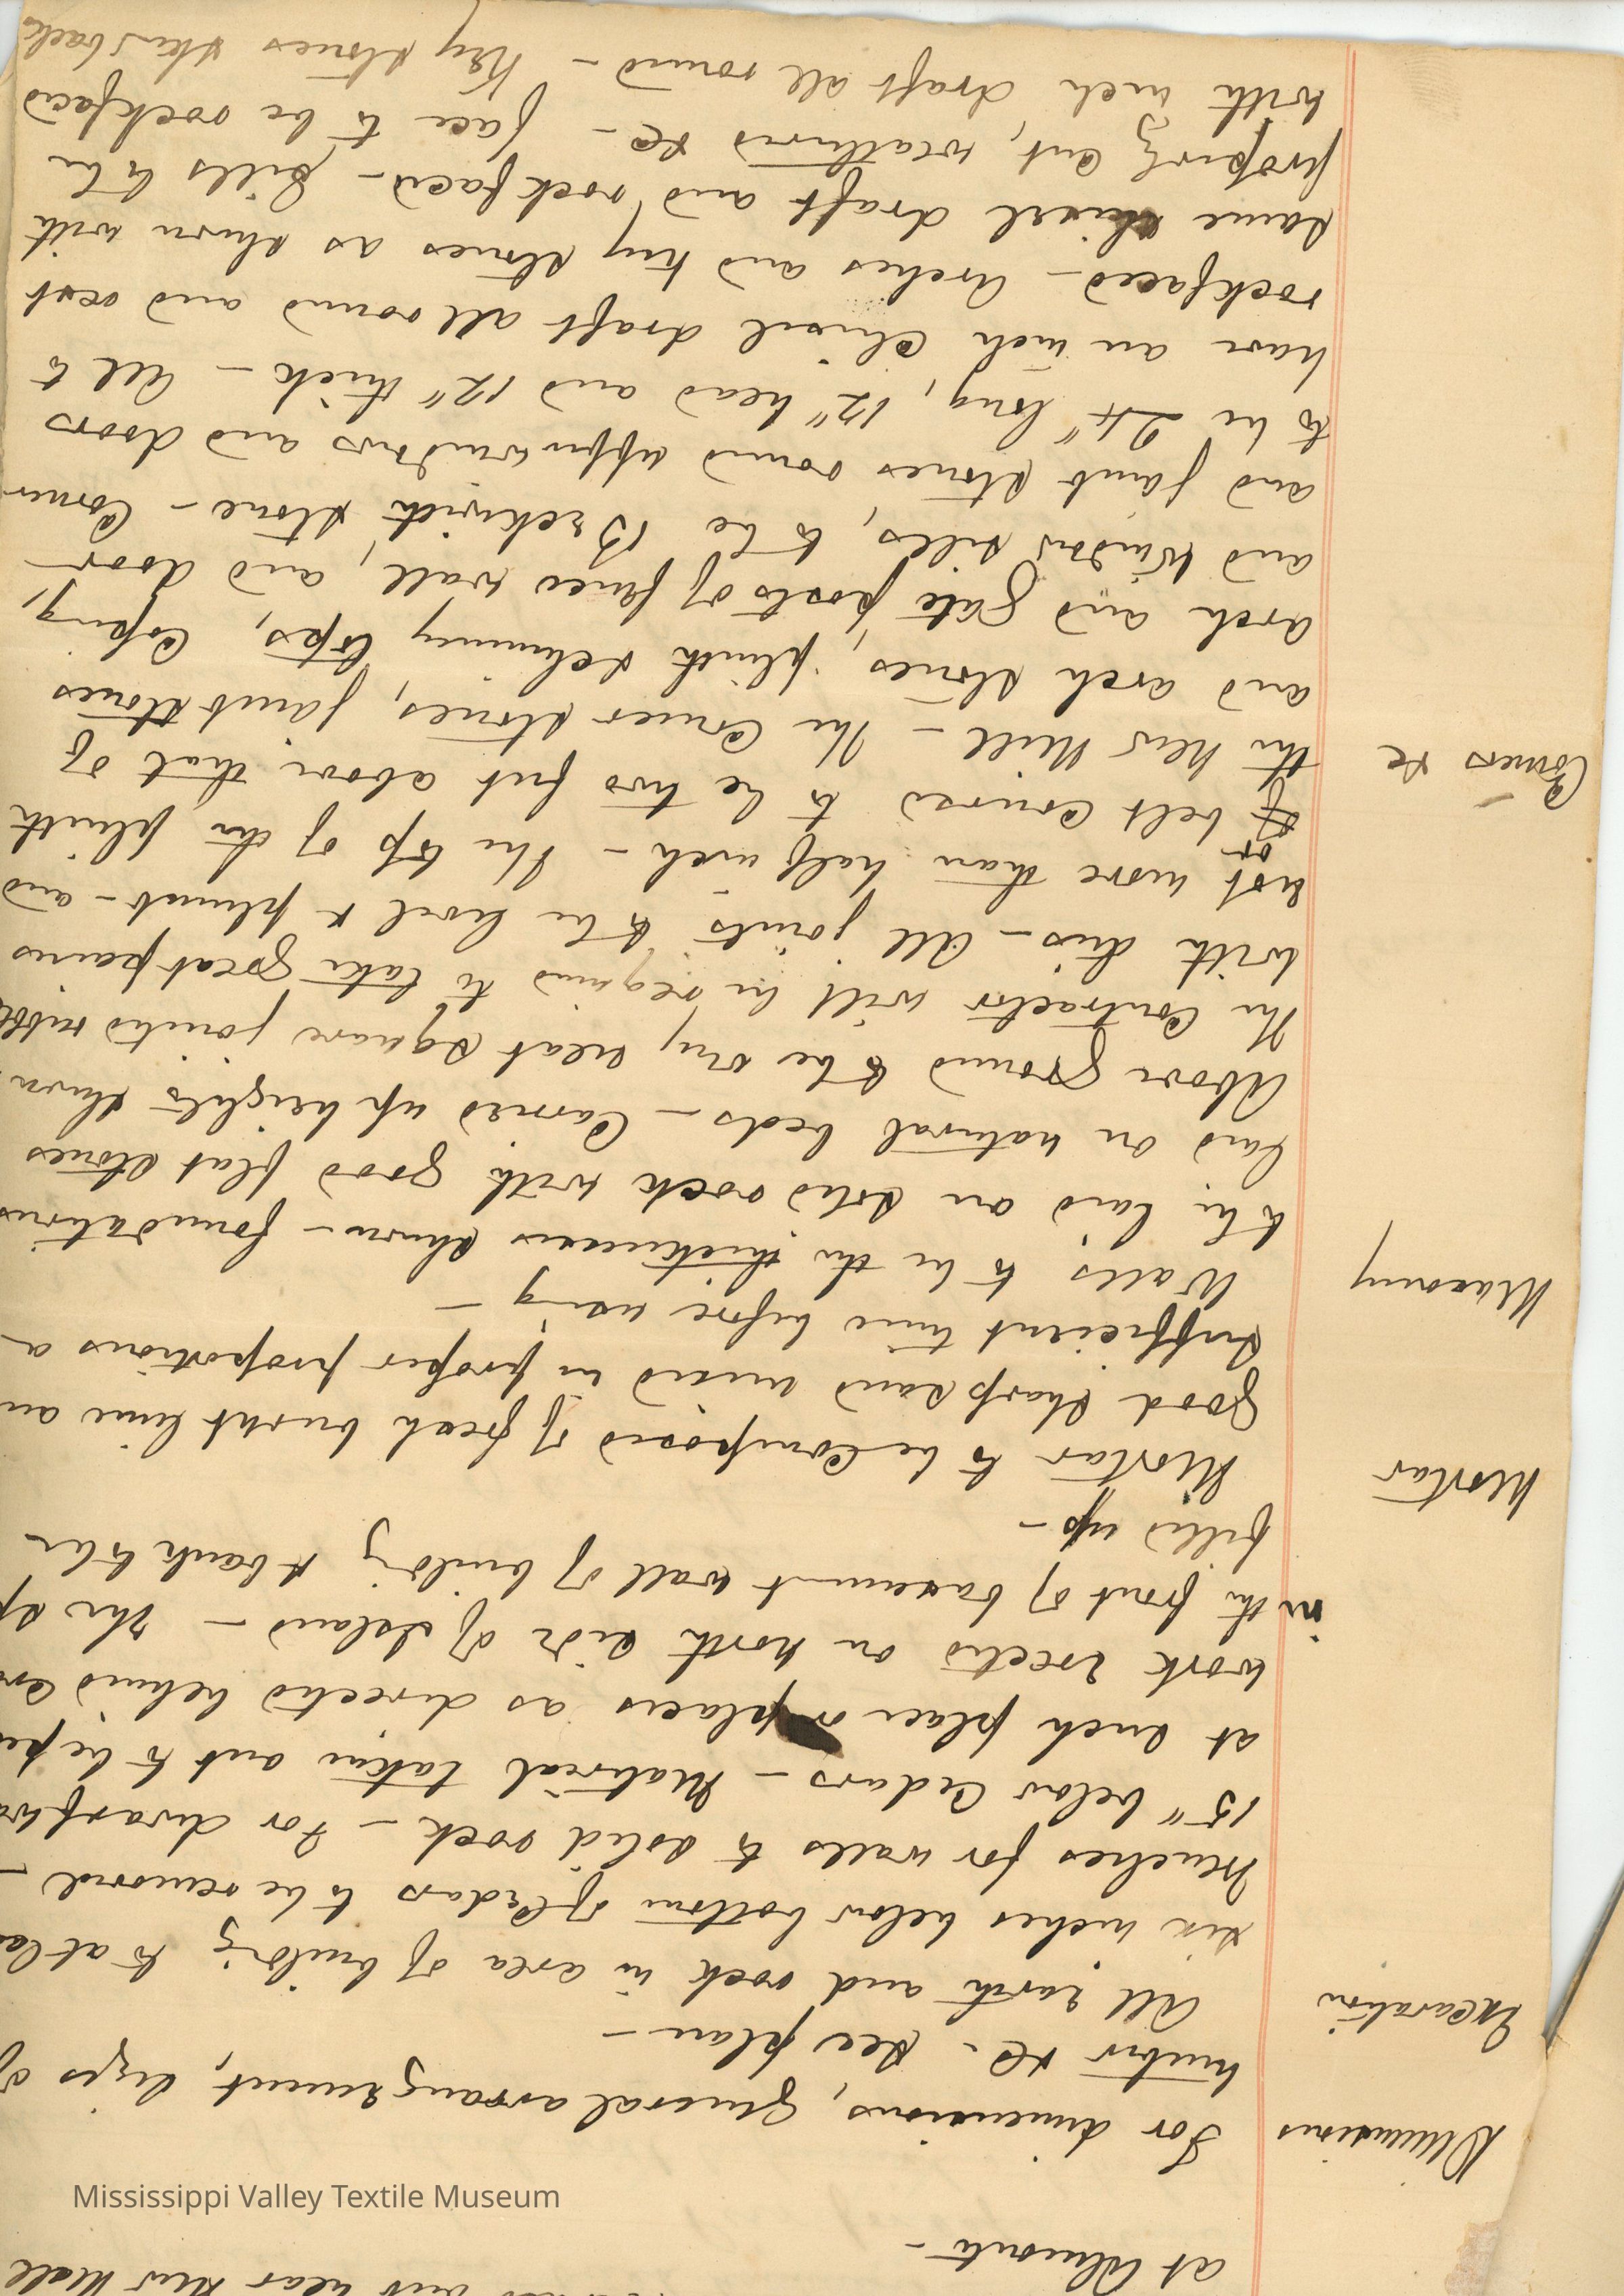 and near New Mill
at Almonte –
Dimensions For dimensions, General arrangement, sizes of
timber &c – see plan –
Excavation All earth and rock in area of building to at
six inches below bottom of Cedars to be removed –
trenches for walls to solid rock – For
15" below Cedars – Material taken out to be
at such place or places as directed behind
work erected on north side of Island – The
in the front of basement wall of building & bank to be
filled up –
Mortar Mortar to be composed of fresh burnt lime an
good sharp sand mixed in proper proportions a
sufficient time before using –
Masonry Walls to be the thicknesses shown – foundations
to be laid on solid rock with good flat stones
laid on natural beds – Carried up heights shown.
Above ground to be very neat square jointed rubble
The Contractor will be required to take great pains
with this – All joints to be level & plumb – and
not more than half inch – The top of the plinth
or belt course to be two feet above that of
Corners &c the New Mill – The Corner stones, jamb stones
and arch stones, plinth & chimney tops, Coping,
arch and gate posts of fence wall, and door
and window sills, to be Beckwith stone – Corner
and jamb stones round upper windows and doors
to be 24" long, 12" head and 12" thick – All to
have an inch chisel draft all round and rest
rockfaced – Arches and key stones as shown with
same chisel draft and rockfaced – Sills to be
properly cut, weathered &c – face to be rockfaced
with inch draft all round – Key stones